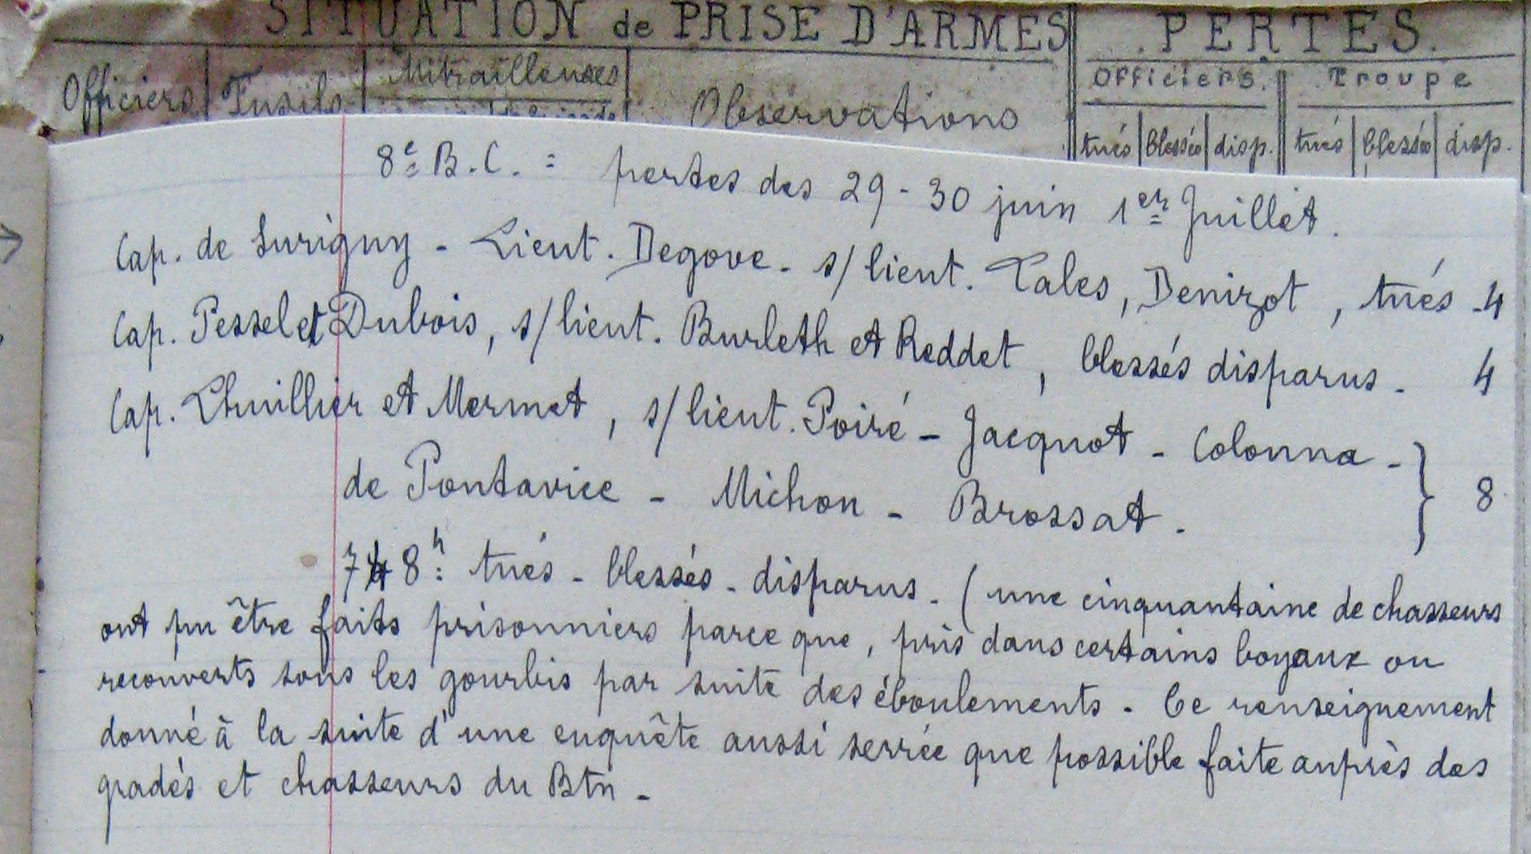 SITUATION de PRISE D'ARMES
PERTES.
Officiers Fusils Mitrailleuses Observations
Officiers. Troupe
tués blessés disp. tués blessés disp.
8e B.C. = pertes des 29-30 juin 1er Juillet.
Cap. de Surigny - Lieut. Degove - s/lieut. Tales, Denizot, tués - 4
Cap. Pessel et Dubois, s/lieut. Burleth et Reddet, blessés disparus - 4
Cap. Lhuillier et Mermet, s/lieut. Poiré - Jacquot - Colonna -
de Pontavice - Michon - Brossat - } 8
748h: tués - blessés - disparus - (une cinquantaine de chasseurs
ont pu être faits prisonniers parce que, pris dans certains boyaux ou
recouverts sous les gourbis par suite des éboulements. Ce renseignement
donné à la suite d'une enquête aussi serrée que possible faite auprès des
gradés et chasseurs du Btn -